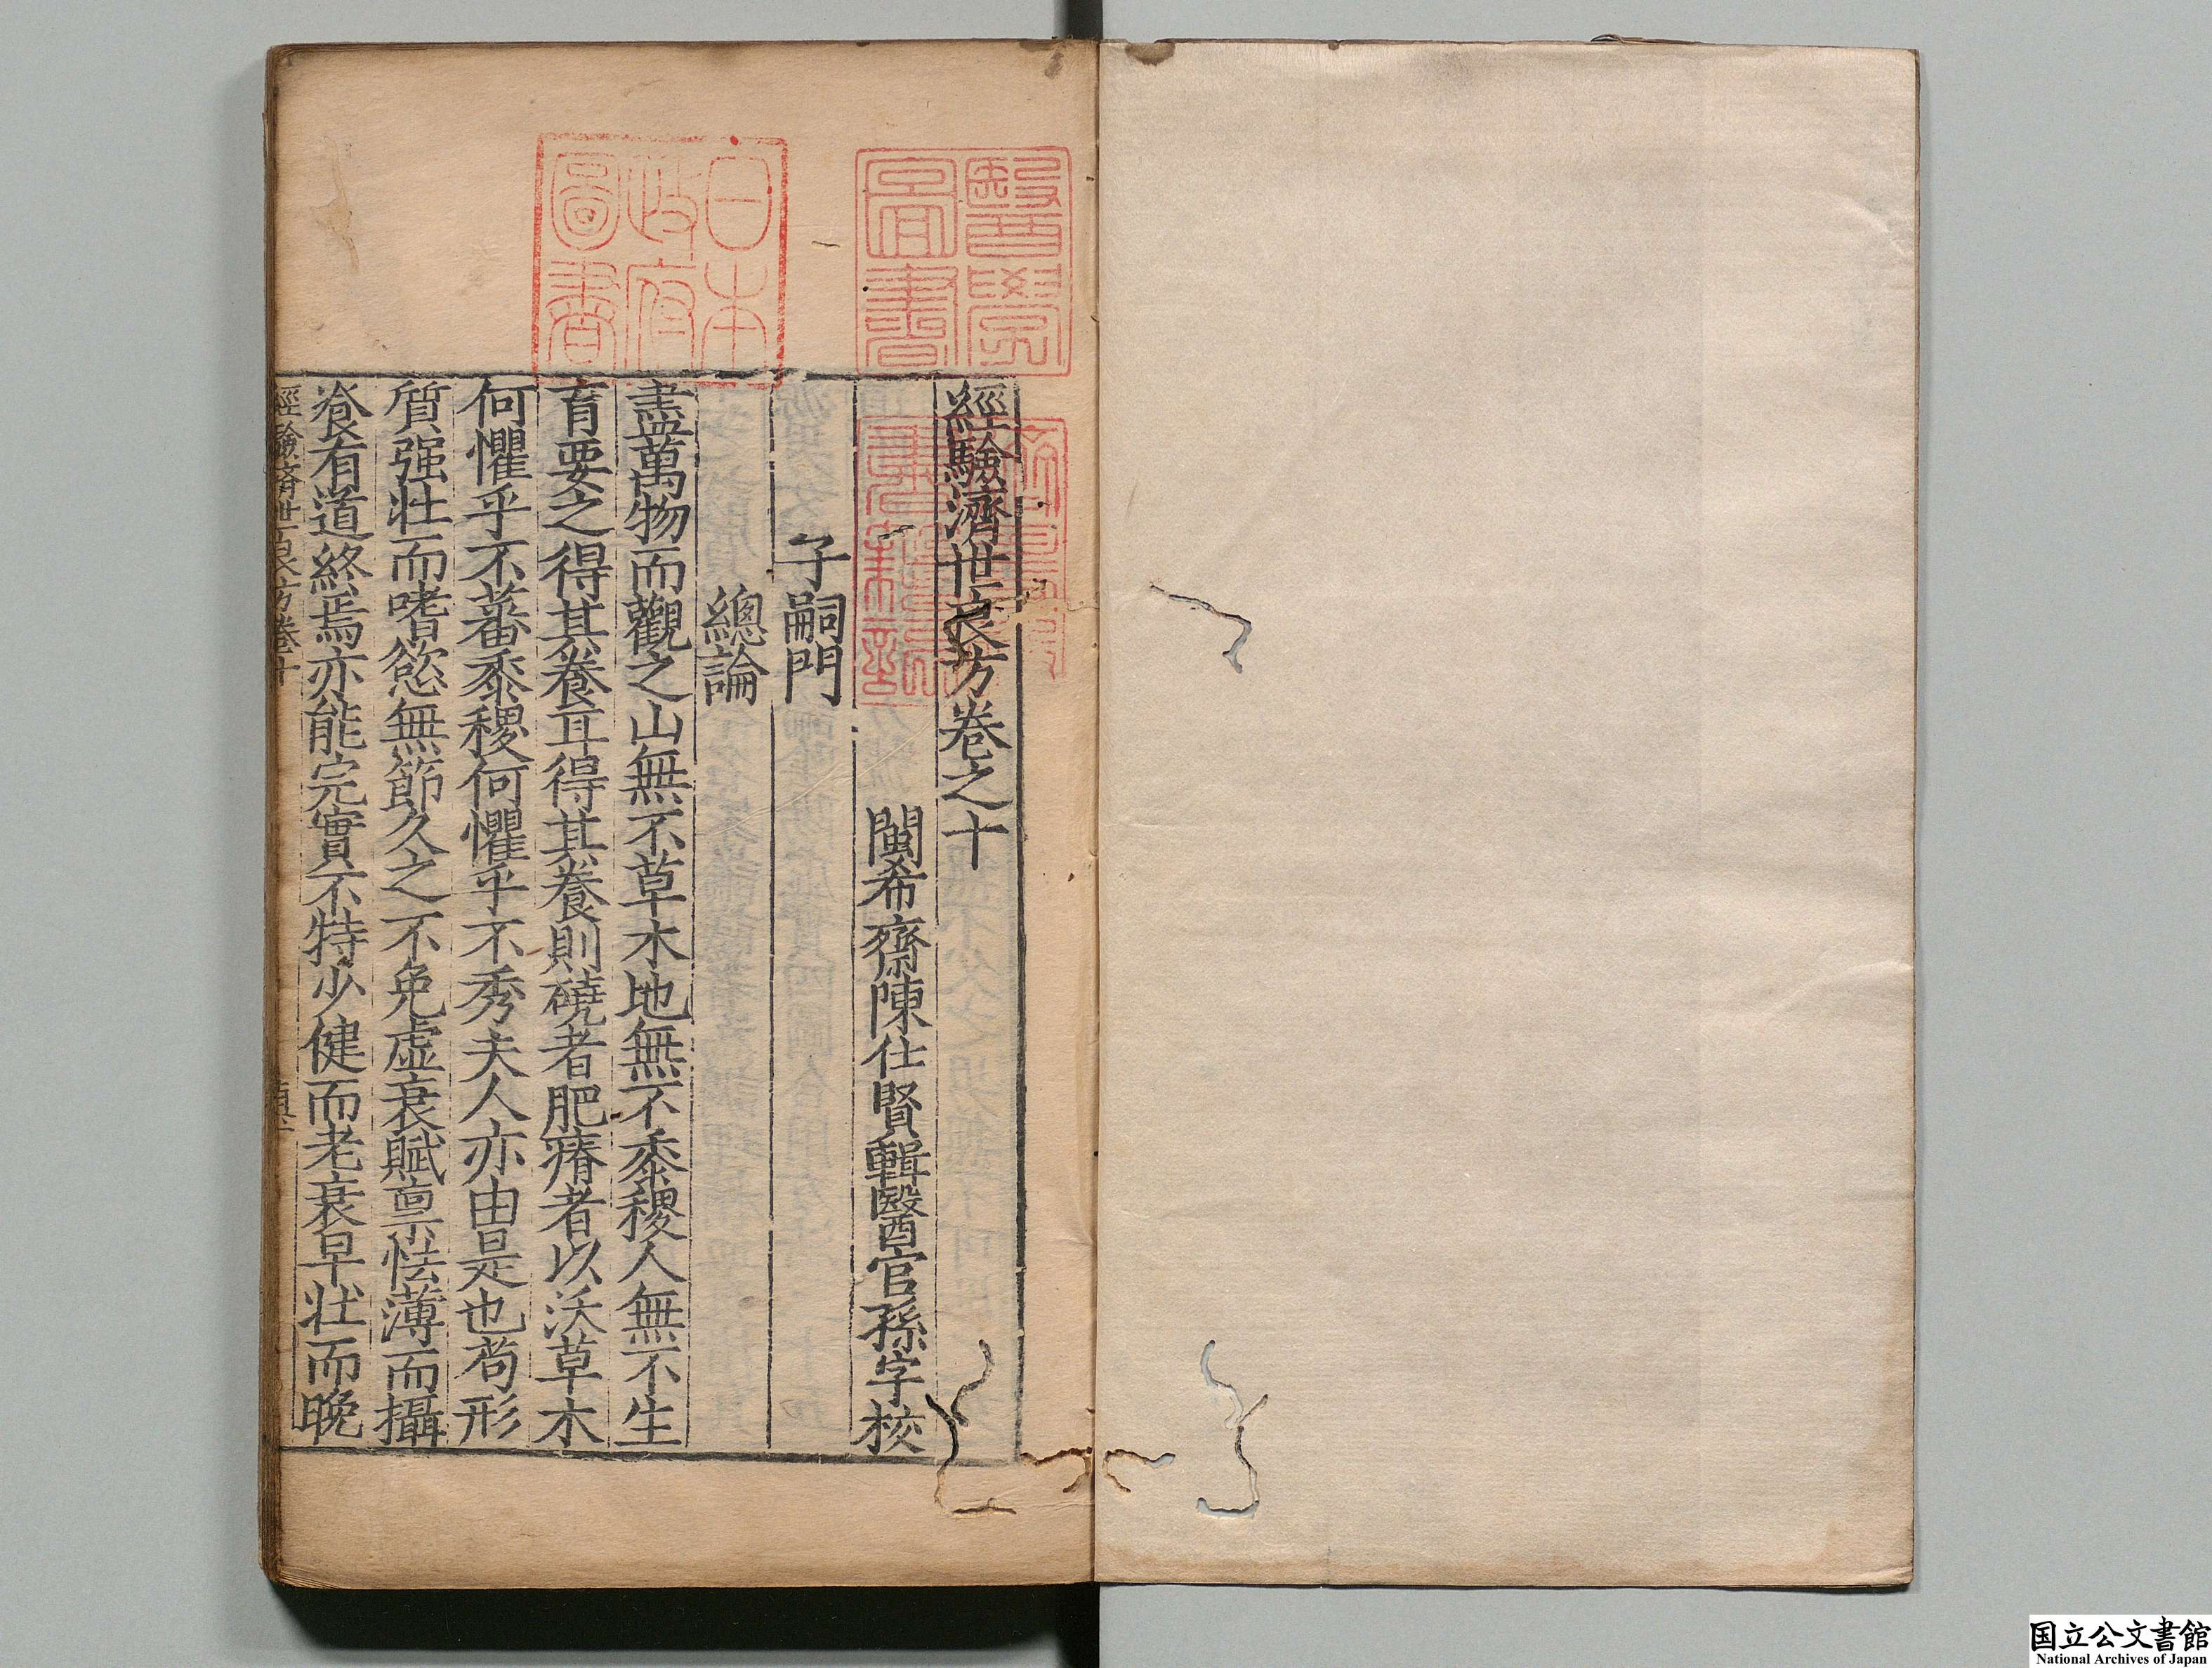 經驗濟世良方卷之十
閩希齋陳仕賢輯醫官孫宇校
子嗣門
總論
盡萬物而觀之山無不草木地無不黍稷人無不生
育要之得其養耳得其養則磽者肥瘠者以沃草木
何懼乎不蕃黍稷何懼乎不秀夫人亦由是也苟形
質强壯而嗜慾無節久之不免虛衰賦禀怯薄而攝
養有道終焉亦能完實不特少健而老衰早壯而晚
經驗濟世良方卷十
醫學圖書
日本政府圖書
国立公文書館
National Archives of Japan